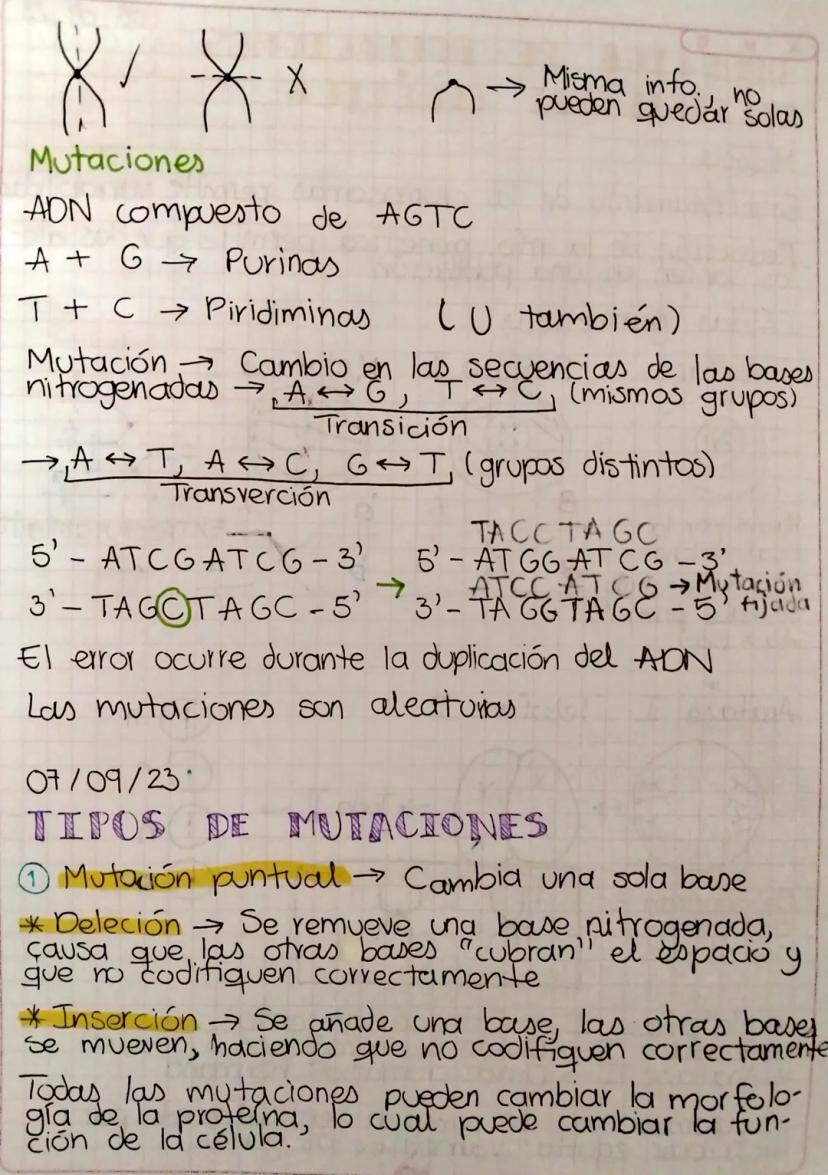 ✓ X → Misma info., no
pueden quedar solas
Mutaciones
ADN compuesto de AGTC
A + G → Purinas
T + C → Piridiminas (U también)
Mutación → Cambio en las secuencias de las bases
nitrogenadas → A ↔ G, T ↔ C, (mismos grupos)
Transición
→ A ↔ T, A ↔ C, G ↔ T, (grupos distintos)
Transverción
TACCTAGC
5' - ATCGATCG - 3' 5' - ATGGATCG - 3'
→ ATCCATCG → Mutación
3' - TAGCTAGC - 5' 3' - TAGGTAGC - 5' fijada
El error ocurre durante la duplicación del ADN
Las mutaciones son aleatorias
07/09/23
TIPOS DE MUTACIONES
① Mutación puntual → Cambia una sola base
* Deleción → Se remueve una base nitrogenada,
causa que las otras bases "cubran" el espacio y
que no codifiquen correctamente
* Inserción → Se añade una base, las otras bases
se mueven, haciendo que no codifiquen correctamente
Todas las mutaciones pueden cambiar la morfolo-
gía de la proteína, lo cual puede cambiar la fun-
ción de la célula.